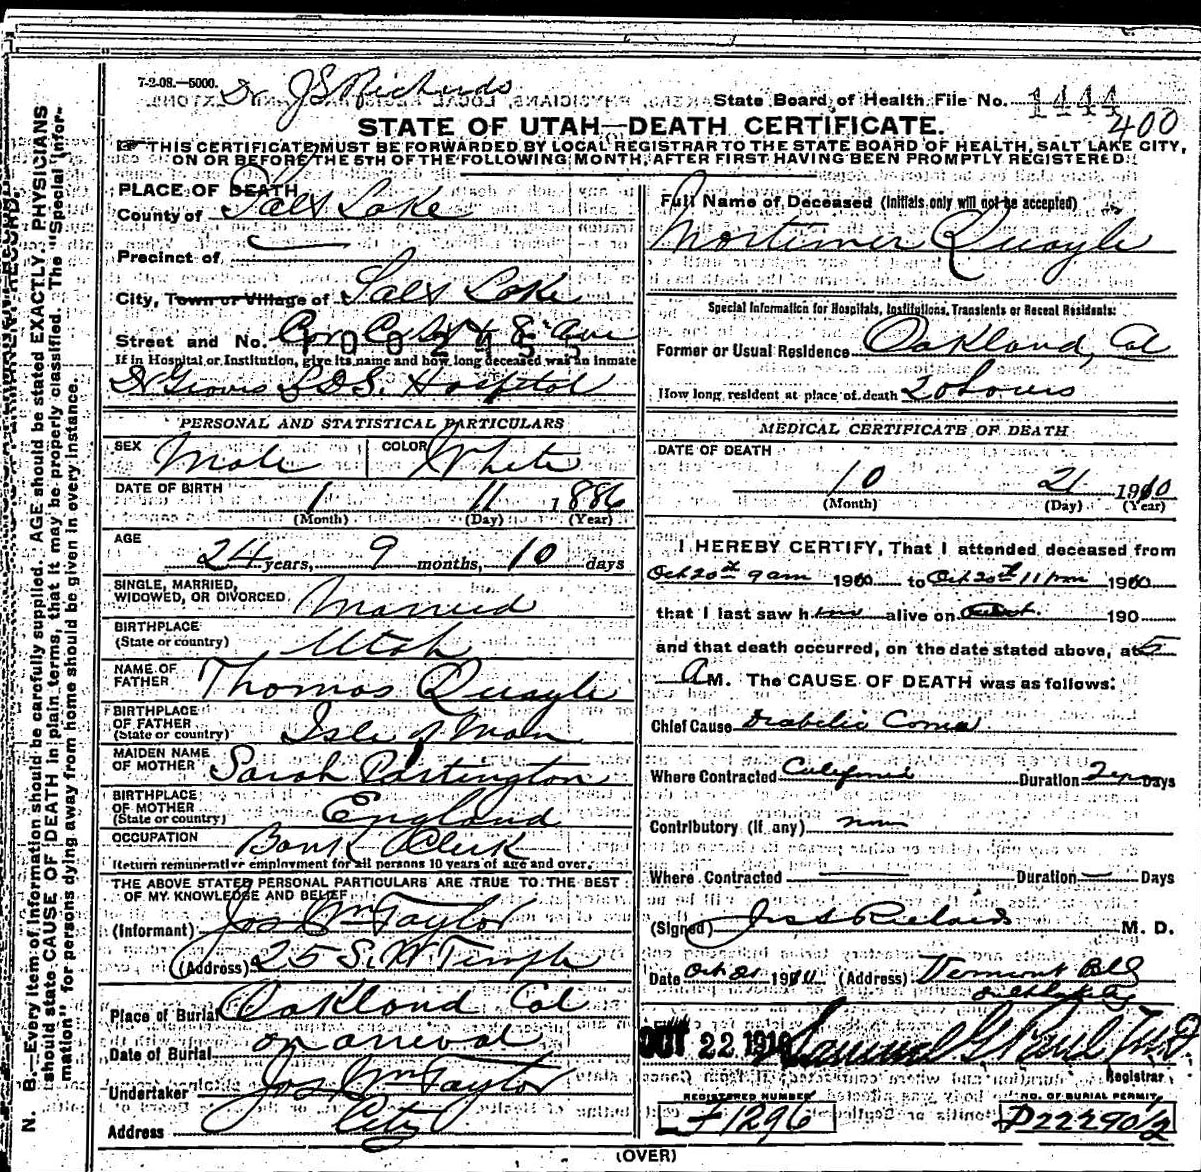 7-2-08.—5000.
Dr J S Richards
State Board of Health File No. 1444
400
STATE OF UTAH—DEATH CERTIFICATE.
THIS CERTIFICATE MUST BE FORWARDED BY LOCAL REGISTRAR TO THE STATE BOARD OF HEALTH, SALT LAKE CITY,
ON OR BEFORE THE 5TH OF THE FOLLOWING MONTH, AFTER FIRST HAVING BEEN PROMPTLY REGISTERED.
N. B.—Every item of information should be carefully supplied. AGE should be stated EXACTLY. PHYSICIANS
should state CAUSE OF DEATH in plain terms, that it may be properly classified. The "Special Infor-
mation" for persons dying away from home should be given in every instance.
PLACE OF DEATH
County of Salt Lake
Precinct of
City, Town or Village of Salt Lake
Street and No. Cor C St & 8 Ave
If in Hospital or Institution, give its name and how long deceased was an inmate
Dr Groves L.D.S. Hospital
PERSONAL AND STATISTICAL PARTICULARS
SEX Male COLOR White
DATE OF BIRTH 1 11 1886
(Month) (Day) (Year)
AGE 24 years, 9 months, 10 days
SINGLE, MARRIED,
WIDOWED, OR DIVORCED Married
BIRTHPLACE
(State or country) Utah
NAME OF
FATHER Thomas Quayle
BIRTHPLACE
OF FATHER
(State or country) Isle of Man
MAIDEN NAME
OF MOTHER Sarah Partington
BIRTHPLACE
OF MOTHER
(State or country) England
OCCUPATION Bank Clerk
Return remunerative employment for all persons 10 years of age and over.
THE ABOVE STATED PERSONAL PARTICULARS ARE TRUE TO THE BEST
OF MY KNOWLEDGE AND BELIEF
(Informant) Jos Wm Taylor
(Address) 25 S. W Temple
Place of Burial Oakland Cal
Date of Burial on arrival
Undertaker Jos Wm Taylor
Address City
Full Name of Deceased (Initials only will not be accepted)
Mortimer Quayle
Special Information for Hospitals, Institutions, Transients or Recent Residents:
Former or Usual Residence Oakland, Cal
How long resident at place of death 20 hours
MEDICAL CERTIFICATE OF DEATH
DATE OF DEATH
10 21 1910
(Month) (Day) (Year)
I HEREBY CERTIFY, That I attended deceased from
Oct 20th 9 am 1910 to Oct 20th 11 pm 1910
that I last saw him alive on 190
and that death occurred, on the date stated above, at 5
A M. The CAUSE OF DEATH was as follows:
Chief Cause Diabetic Coma
Where Contracted California Duration Days
Contributory (if any) none
Where Contracted — Duration — Days
(Signed) Jos S Richards M. D.
Date Oct 21 1910 (Address) Vermont Bldg
Salt Lake City
OCT 22 1910 Samuel G Paul M.D.
Registrar
REGISTERED NUMBER NO. OF BURIAL PERMIT
F1296 D22290 1/2
(OVER)